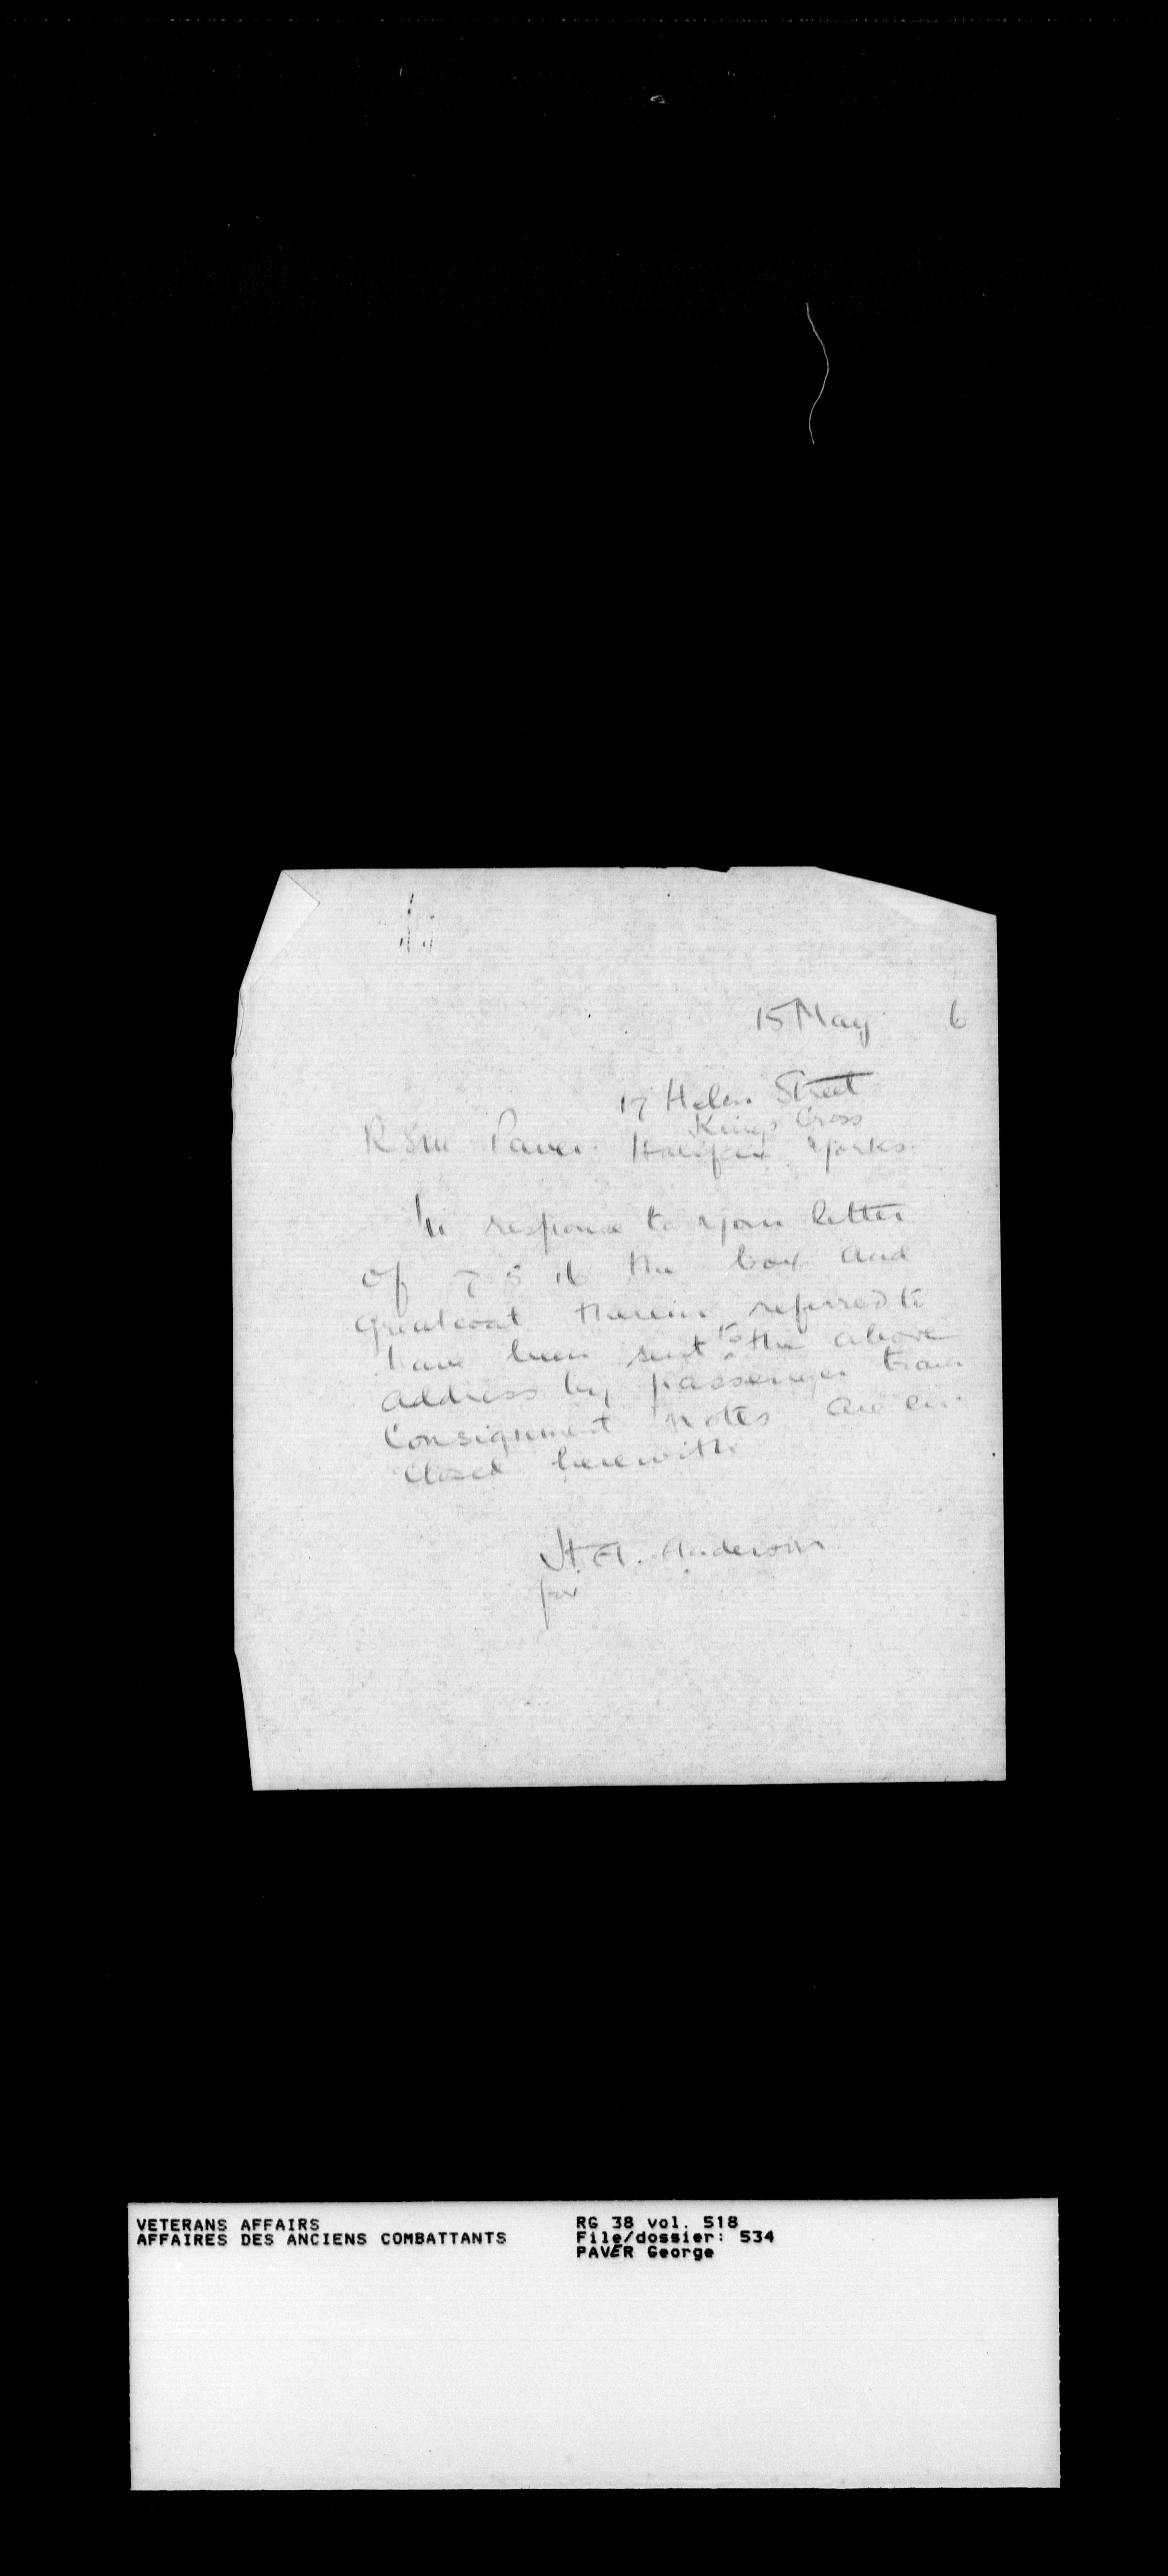 15 May 6
17 Helen Street
Kings Cross
RSM Paver. Halifax Yorks.
In response to your letter
of 7 5 16 the box and
greatcoat therein referred to
have been sent to the above
address by passenger train
Consignment notes are en-
closed herewith
H.A. Anderson
for
VETERANS AFFAIRS
AFFAIRES DES ANCIENS COMBATTANTS
RG 38 vol. 518
File/dossier: 534
PAVER George